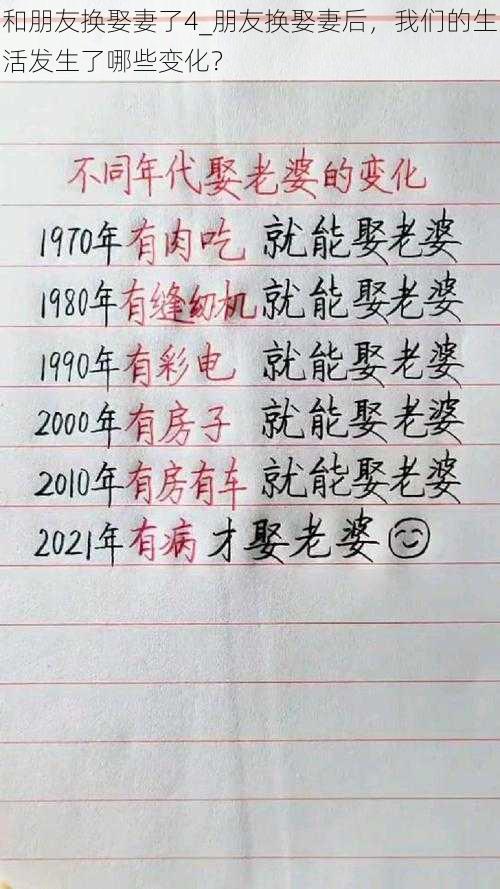 和朋友换娶妻了4_朋友换娶妻后，我们的生
活发生了哪些变化？
不同年代娶老婆的变化
1970年有肉吃 就能娶老婆
1980年有缝纫机就能娶老婆
1990年有彩电 就能娶老婆
2000年有房子 就能娶老婆
2010年有房有车 就能娶老婆
2021年有病 才娶老婆